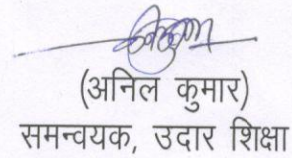 (अनिल कुमार)
समन्वयक, उदार शिक्षा